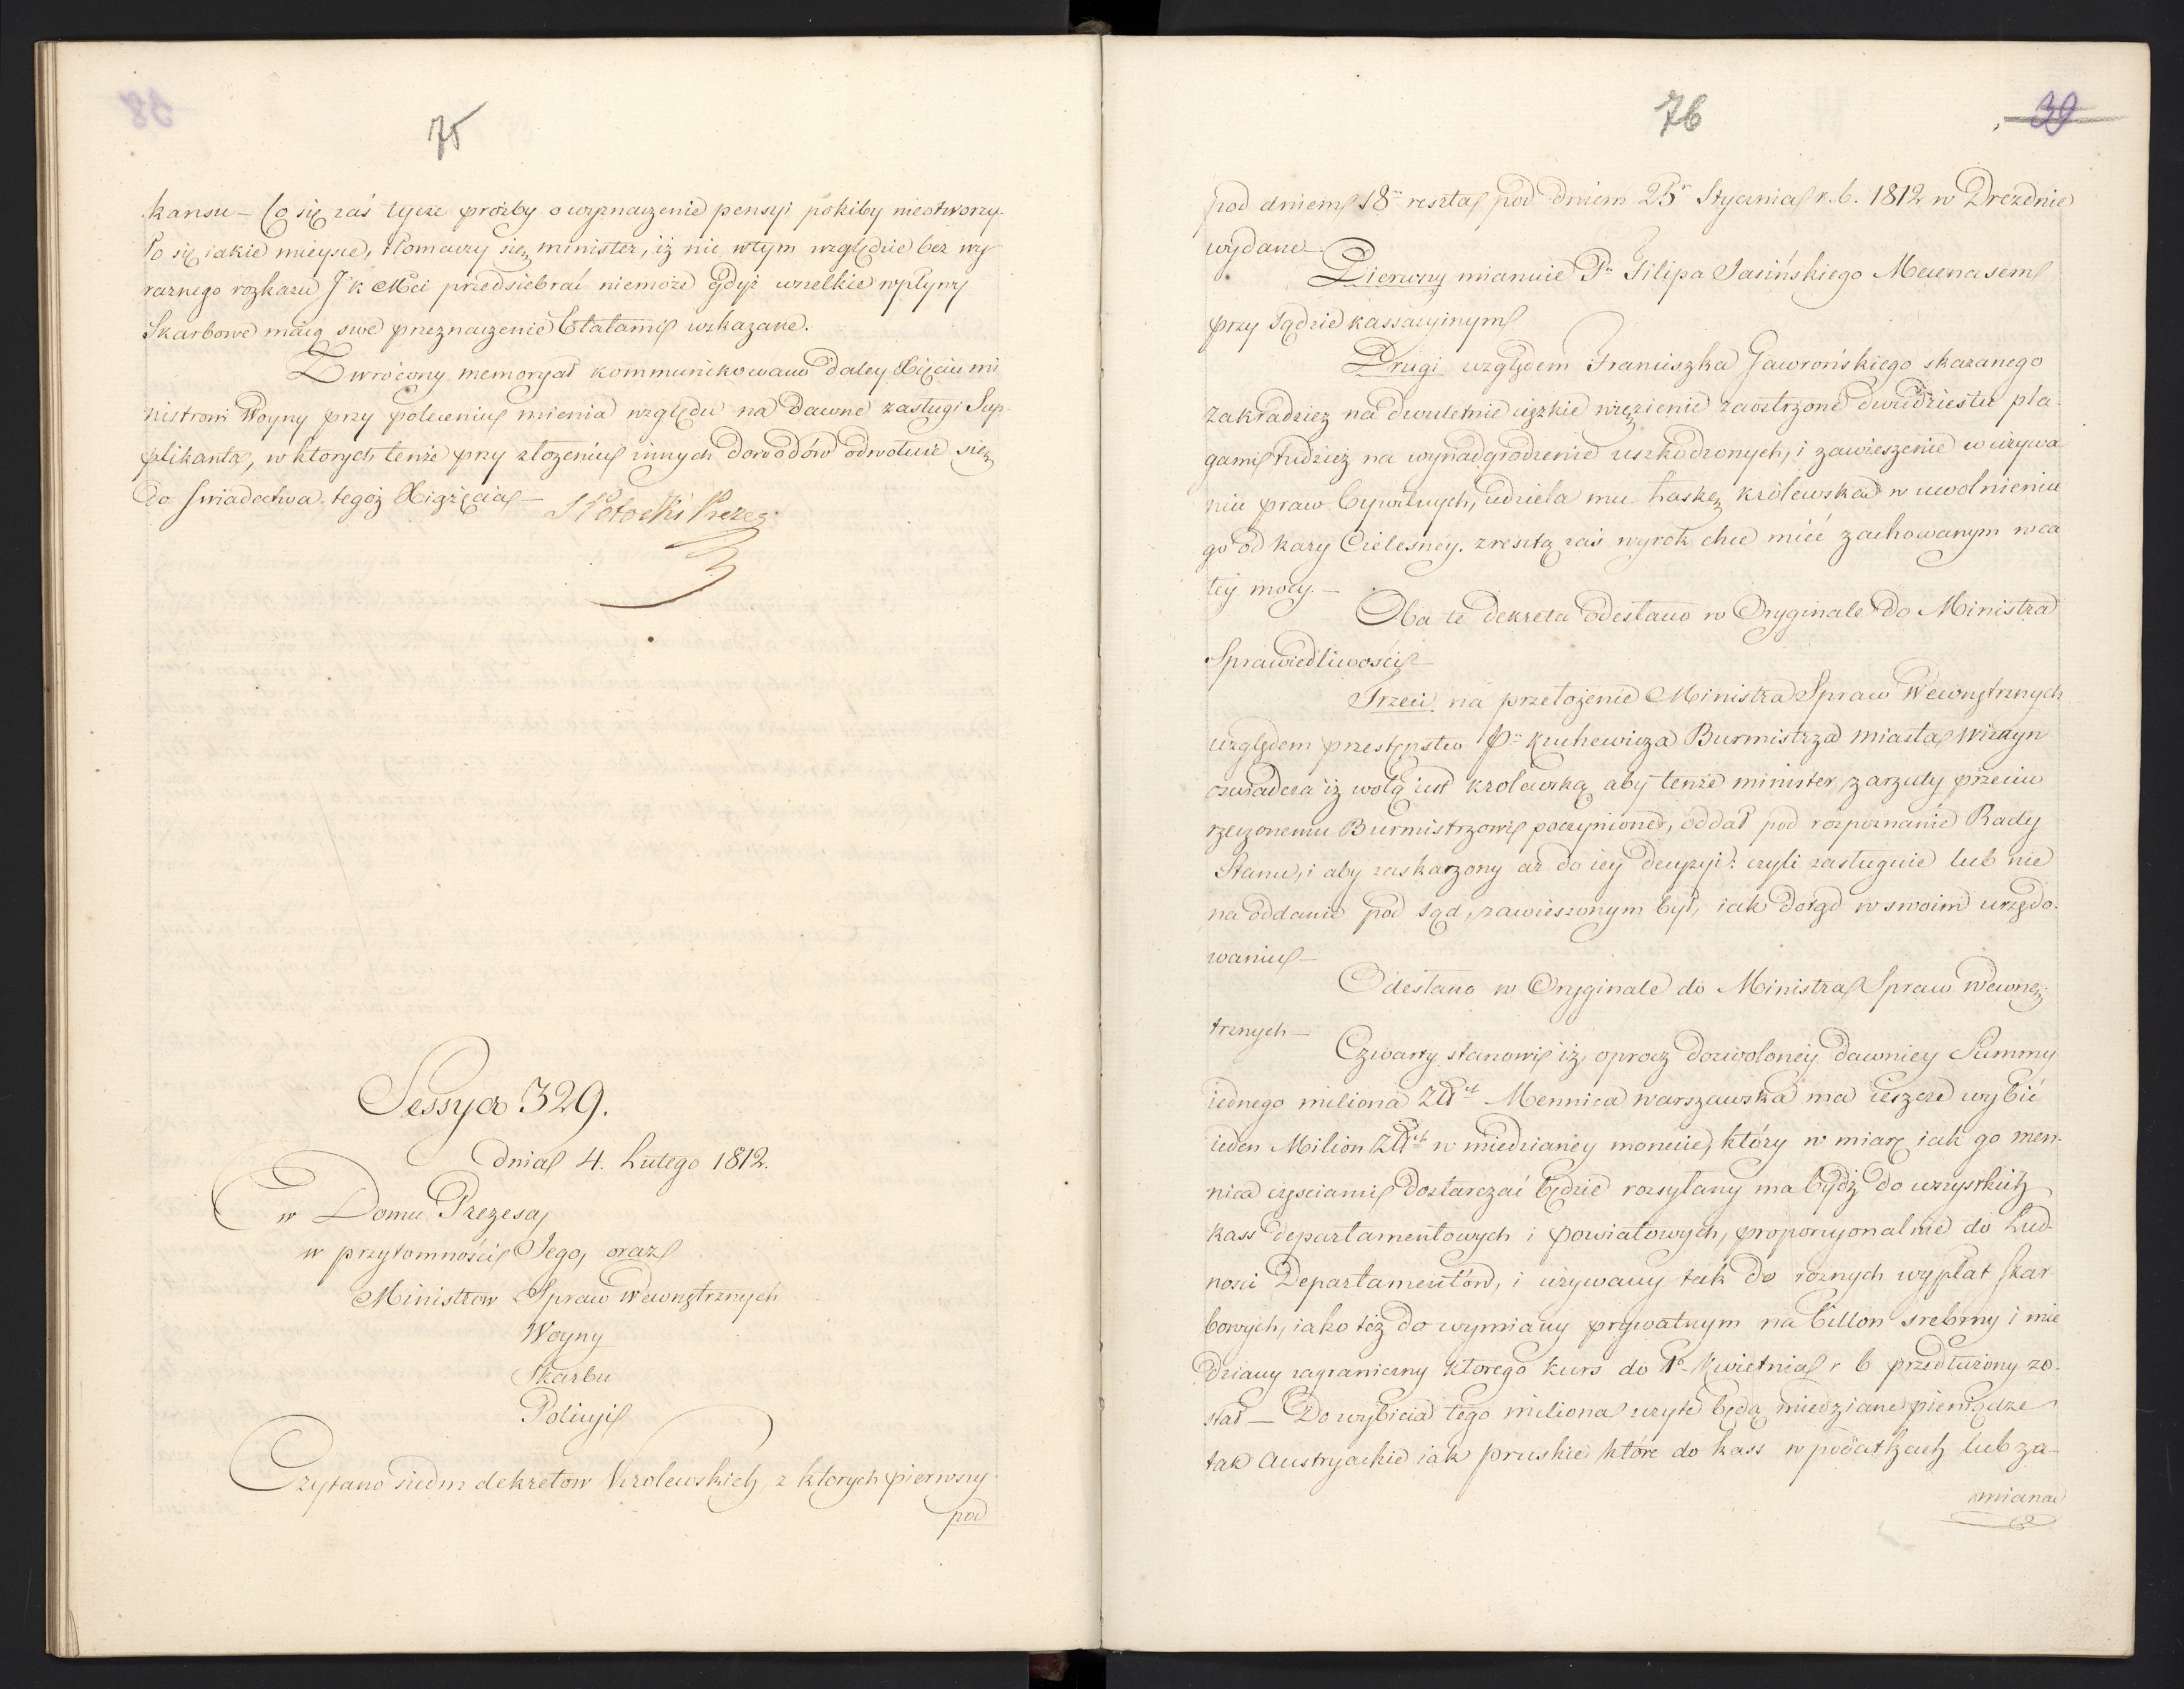 75
kansu – Co się zaś tycze prożby o wyznaczenie pensyi pokiby nieotworzy-
ło się iakie mieysce, tłomaczy się minister, iż nic wtym względzie bez wy
raznego rozkazu JK Mci przedsiebrać niemoże gdyż wszelkie wpływy
Skarbowe maią swe przeznaczenie Etatami wskazane.
Zwrócony memoryał kommunikowano daley Xięciu mi
nistrowi Woyny przy poleceniu mienia względu na dawne zasługi Sup-
plikanta, w ktorych tenże przy złożeniu innych dowodów odwołuie się
do swiadectwa tegoż Xiążęcia –
SPotocki Prezes
Sessya 329.
dnia 4. Lutego 1812.
w Domu Prezesa,
w przytomności Jego, oraz
Ministrow Spraw Wewnętrznych
Woyny
Skarbu
Policyi
Czytano siedm dekretow Krolewskich, z ktorych pierwszy
pod
76
39
pod dniem 18 reszta pod dniem 25 Stycznia r. b. 1812 w Dreznie
wydane –
Pierwszy mianuie Pa Filipa Jasińskiego Mecenasem
przy Sądzie kassacyinym
Drugi względem Franciszka Jaworońskiego skazanego
za kradzież na dwuletnie ciężkie więzienie zaostrzone dwudziestu pla-
gami tudzież na wynadgrodzenie uszkodzonych, i zawieszenie w używa
niu praw Cywilnych, udziela mu łaskę królewską w uwolnieniu
go od kary Cielesney. zresztą zaś wyrok chce mieć zachowanym w ca
łey mocy. –
Oba te dekreta odesłano w Oryginale do Ministra
Sprawiedliwości –
Trzeci na przełożenie Ministra Spraw Wewnętrznych
względem przestępstw Pa Kuchewicza Burmistrza miasta Wizayn
oswiadcza iż wolą iest krolewską aby tenże minister, zarzuty przeciw
rzeczonemu Burmistrzowi poczynione, oddał pod rozpoznanie Rady
Stanu, i aby zaskarzony az do iey decyzyi: czyli zasługuie lub nie
na oddanie pod sąd, zawieszonym był, iak dotąd w swoim urzędo-
waniu –
Odesłano w Oryginale do Ministra Spraw Wewnę-
trznych –
Czwarty stanowi iż, oprocz dozwoloney dawniey Summy
iednego miliona Złł Mennica warszawska ma ieszcze wybić
ieden Milion Złł w miedzianey monecie, który w miarę iak go men-
nica czesciami dostarczać będzie rozsyłany ma bydź do wszystkich
kass departamentowych i powiatowych, proporcyonalnie do Lud-
nosci Departamentów, i używany tak do roznych wypłat skar-
bowych, iako téż do wymiany prywatnym na billon srebrny i mie
dziany zagraniczny ktorego kurs do 1o Kwietnia r b przedłużony zo-
stał – Do wybicia tego miliona użyte będą miedziane pieniądze
tak Austryackie iak pruskie które do kass w podatkach lub za-
miana